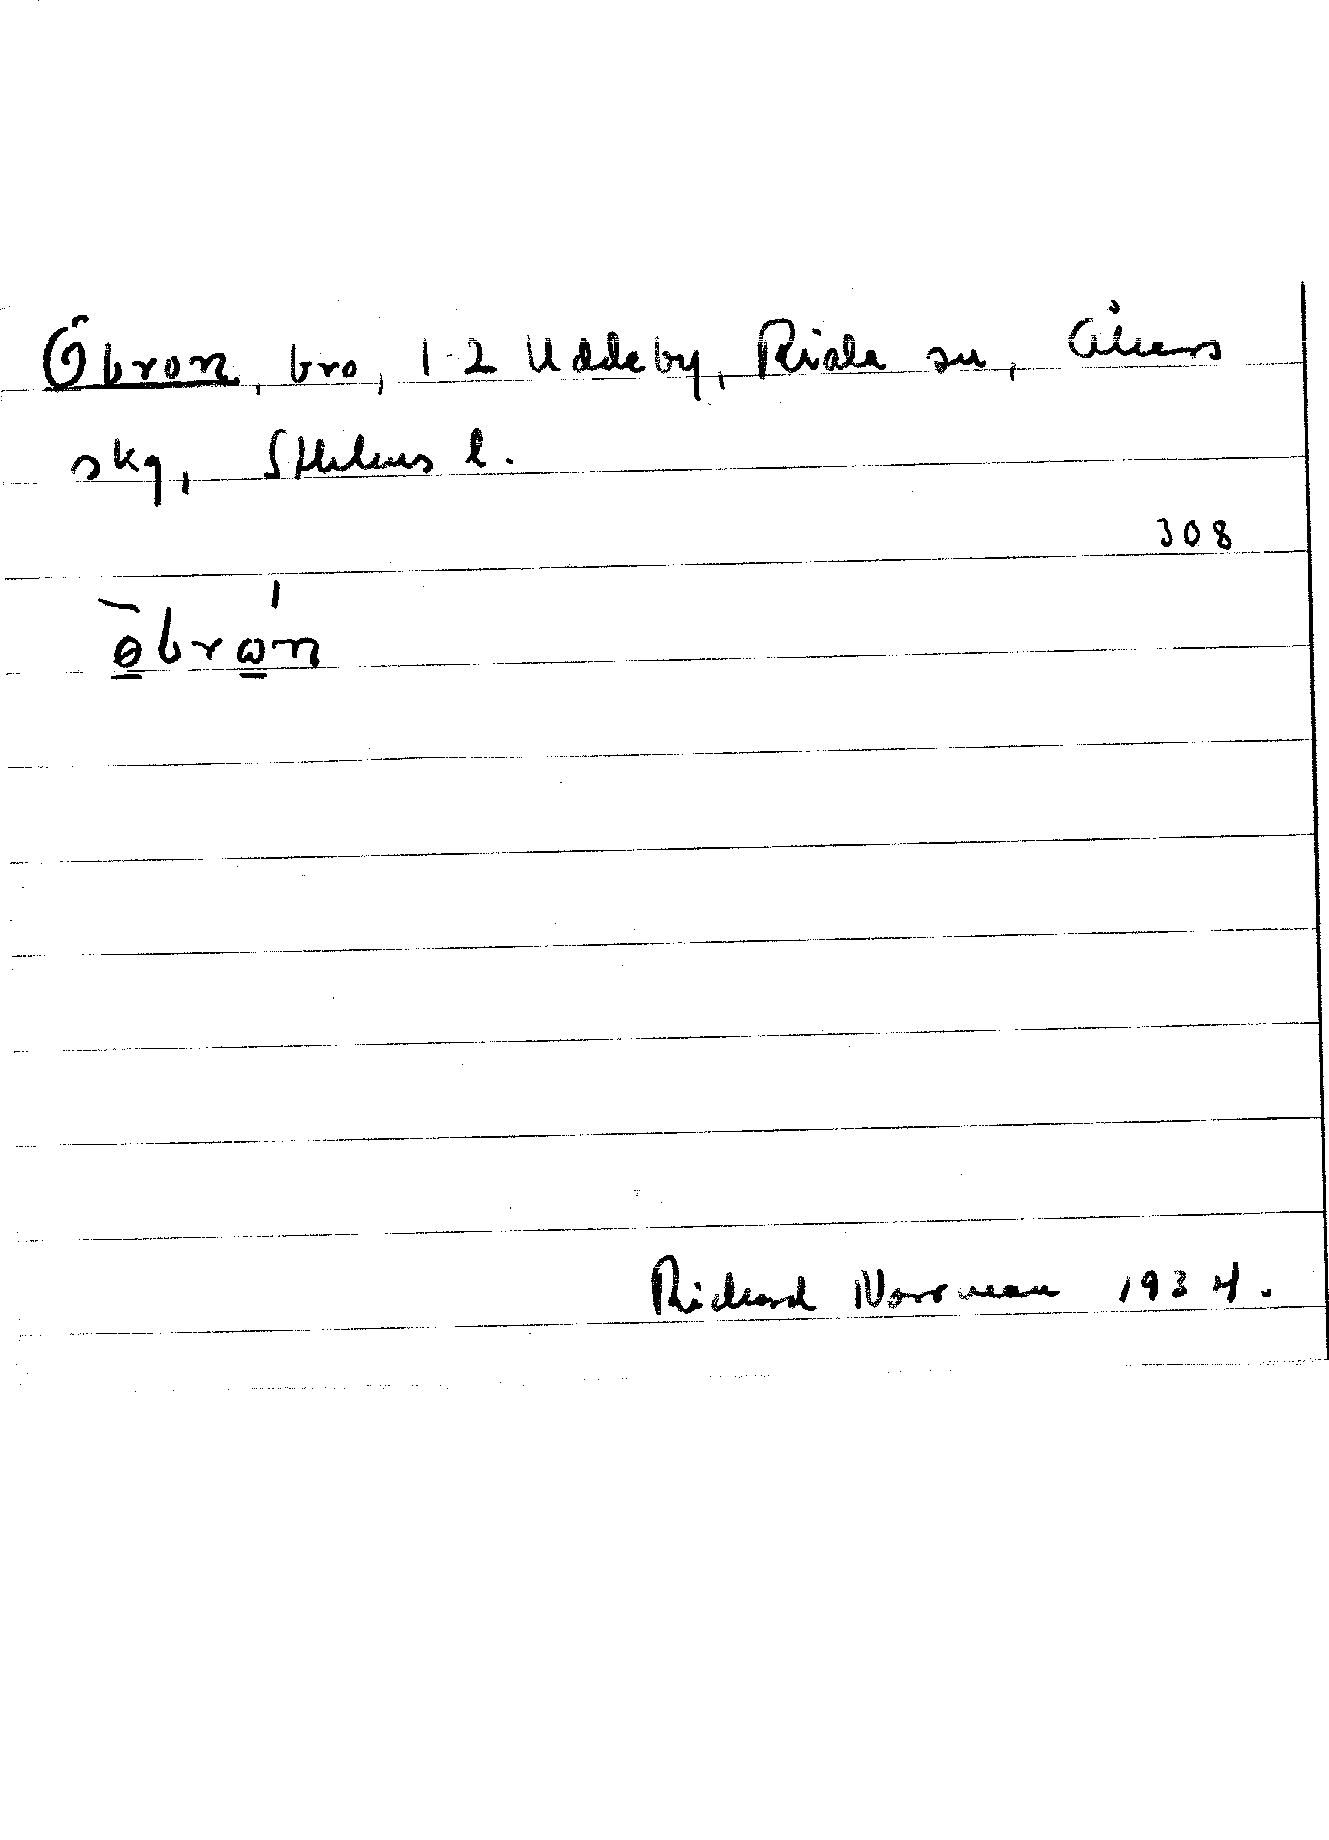 Öbron, bro, 1-2 Uddeby, Riala sn, Åkers
skg, Sthlms l.
308
ɵ̄brω̍n
Richard Norrman 1934.